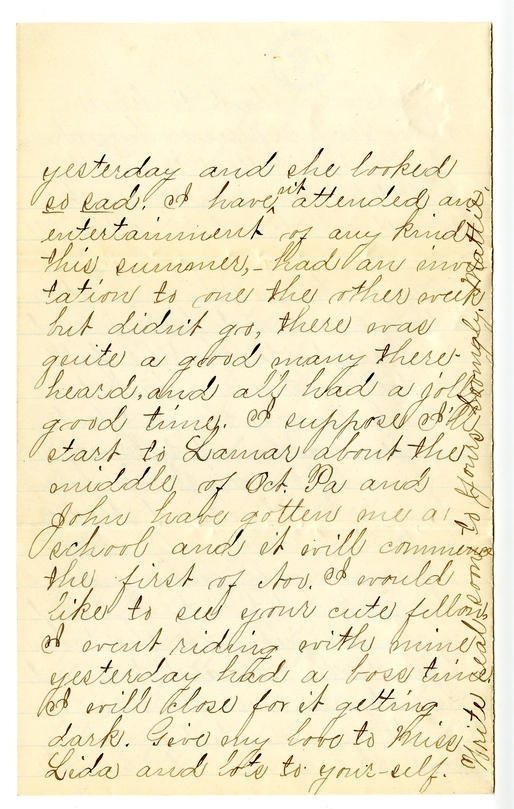 yesterday and she looked
so sad. I haven't attended an
entertainment of any kind
this summer, - had an invi
tation to one the other week
but didn't go, there was
quite a good many there
heard, and all had a jolly
good time. I suppose I'll
start to Lamar about the
middle of Oct. Pa and
John have gotten me a
school and it will commence
the first of Nov. I would
like to see your cute fellow,
I went riding with mine
yesterday had a boss time
I will close for it getting
dark. Give my love to Miss
Lida and lots to your-self.
Write real soon to Yours Lovingly, Mattie.